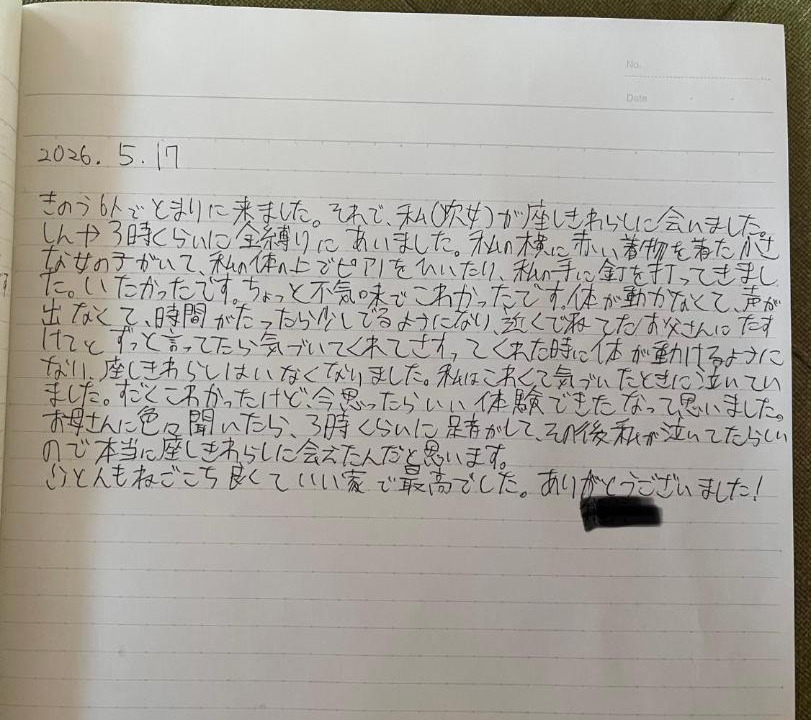 No.
Date
2026.5.17
きのう6人でとまりに来ました。それで、私(次女)が座しきわらしに会いました。
しんや3時くらいに金縛りにあいました。私の横に赤い着物を着た小さ
な女の子がいて、私の体の上でピアノをひいたり、私の手に釘を打ってきまし
た。いたかったです。ちょっと不気味でこわかったです。体が動かなくて、声が
出なくて、時間がたったら少しでるようになり、近くでねてたお父さんにたす
けてとずっと言ってたら気づいてくれてさすってくれた時に体が動けるように
なり、座しきわらしはいなくなりました。私はこわくて気づいたときに泣いてい
ました。すごくこわかったけど、今思ったらいい体験できたなって思いました。
お母さんに色々聞いたら、3時くらいに足音がして、その後私が泣いてたらしい
ので本当に座しきわらしに会えたんだと思います。
ふとんもねごこち良くていい家で最高でした。ありがとうございました!